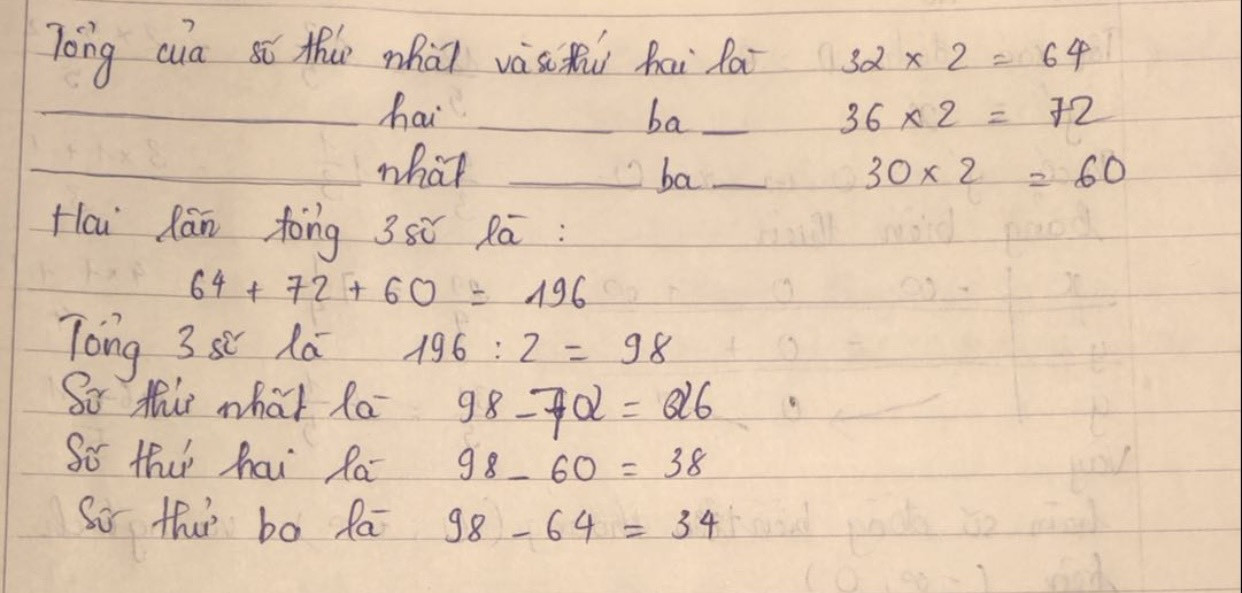 Tổng của số thứ nhất và số thứ hai là 32 x 2 = 64
hai ba 36 x 2 = 72
nhất ba 30 x 2 = 60
Hai lần tổng 3 số là :
64 + 72 + 60 = 196
Tổng 3 số là 196 : 2 = 98
Số thứ nhất là 98 - 72 = 26
Số thứ hai là 98 - 60 = 38
Số thứ ba là 98 - 64 = 34